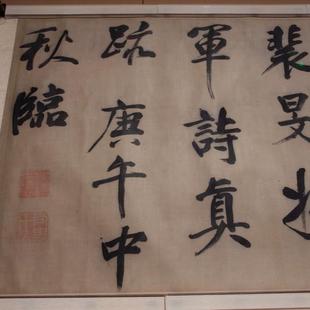 裴旻
軍詩真
跡庚午中
秋臨